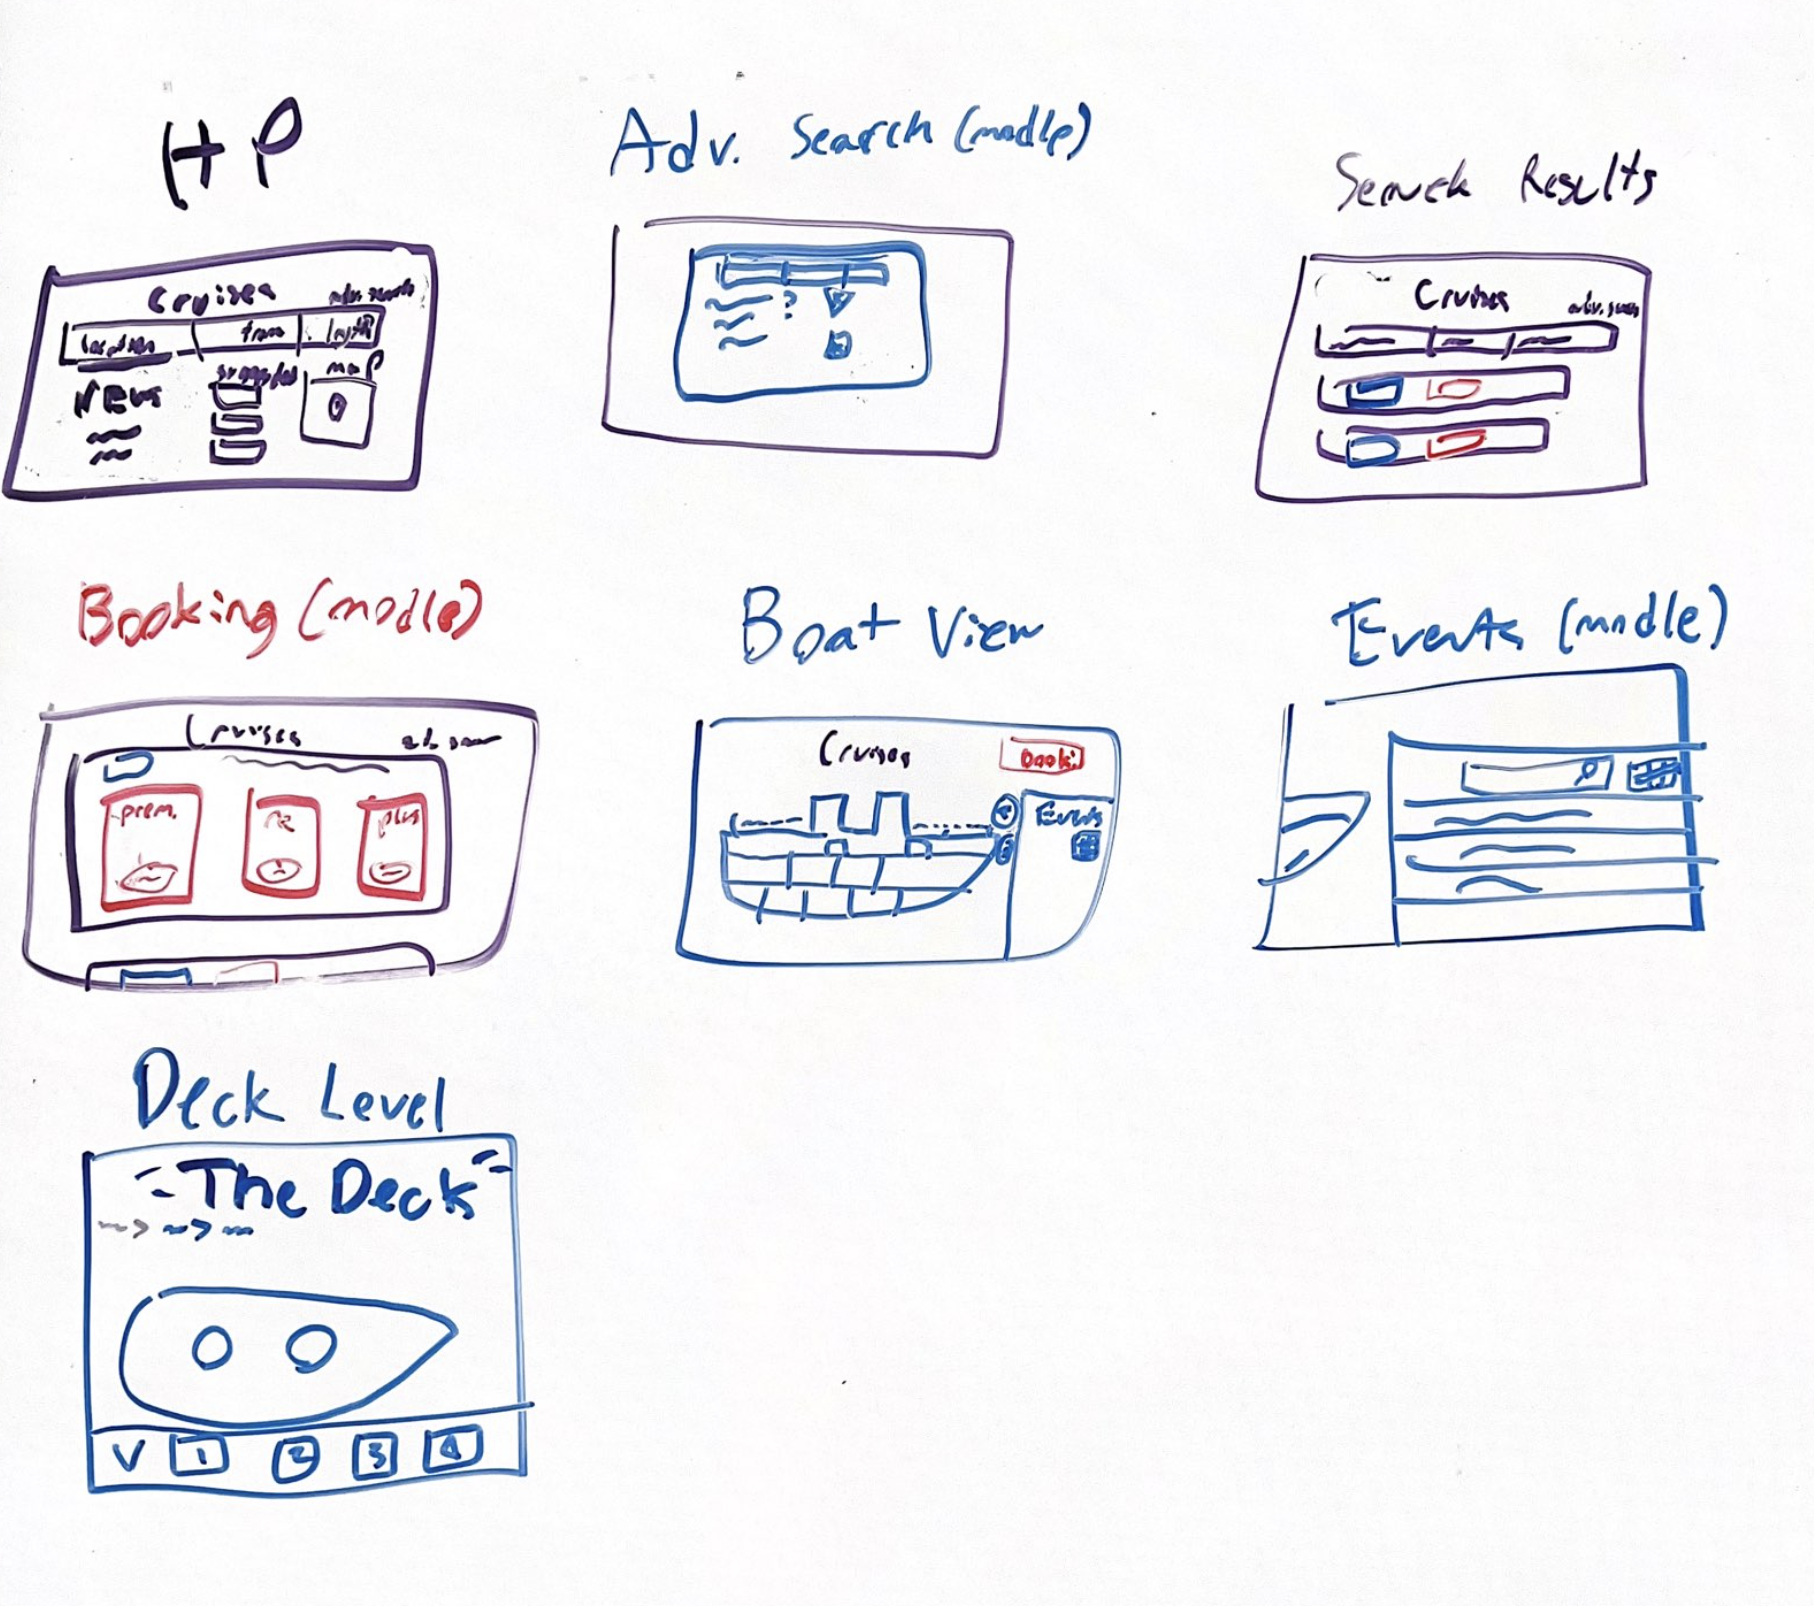 HP
Cruises
adv. search
location
from
News
map
Adv. Search (modle)
?
Search Results
Cruises
Booking (modle)
Cruises
prem.
plus
Boat View
Cruises
book
Events
Events (modle)
Deck Level
The Deck
V 1 2 3 4